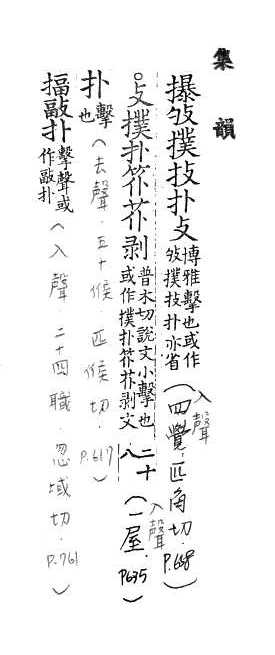 集韻
㩧攴撲技扑攴 博雅擊也或作攴撲技扑亦省（入聲 四覺．匹角切．P.658）
○攴撲扑㭎朴剥 普木切說文小擊也或作撲扑剥文二十八（入聲 一屋．P635）
扑 擊也（去聲．五十候．匹候切．P.617）
揊㪤扑 擊聲或作㪤扑（入聲．二十四職．忽域切．P.761）